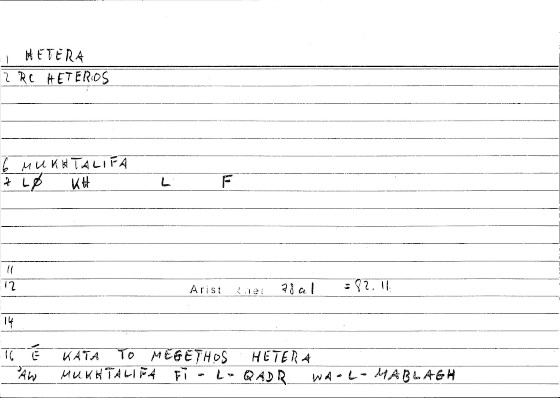 1 HETERA
2 RC HETEROS
6 MUKHTALIFA
7 LØ KH L F
11
12 Arist Rhet 78a1 = 82.11
14
16 Ē KATA TO MEGETHOS HETERA
'AW MUKHTALIFA FĪ - L - QADR WA - L - MABLAGH